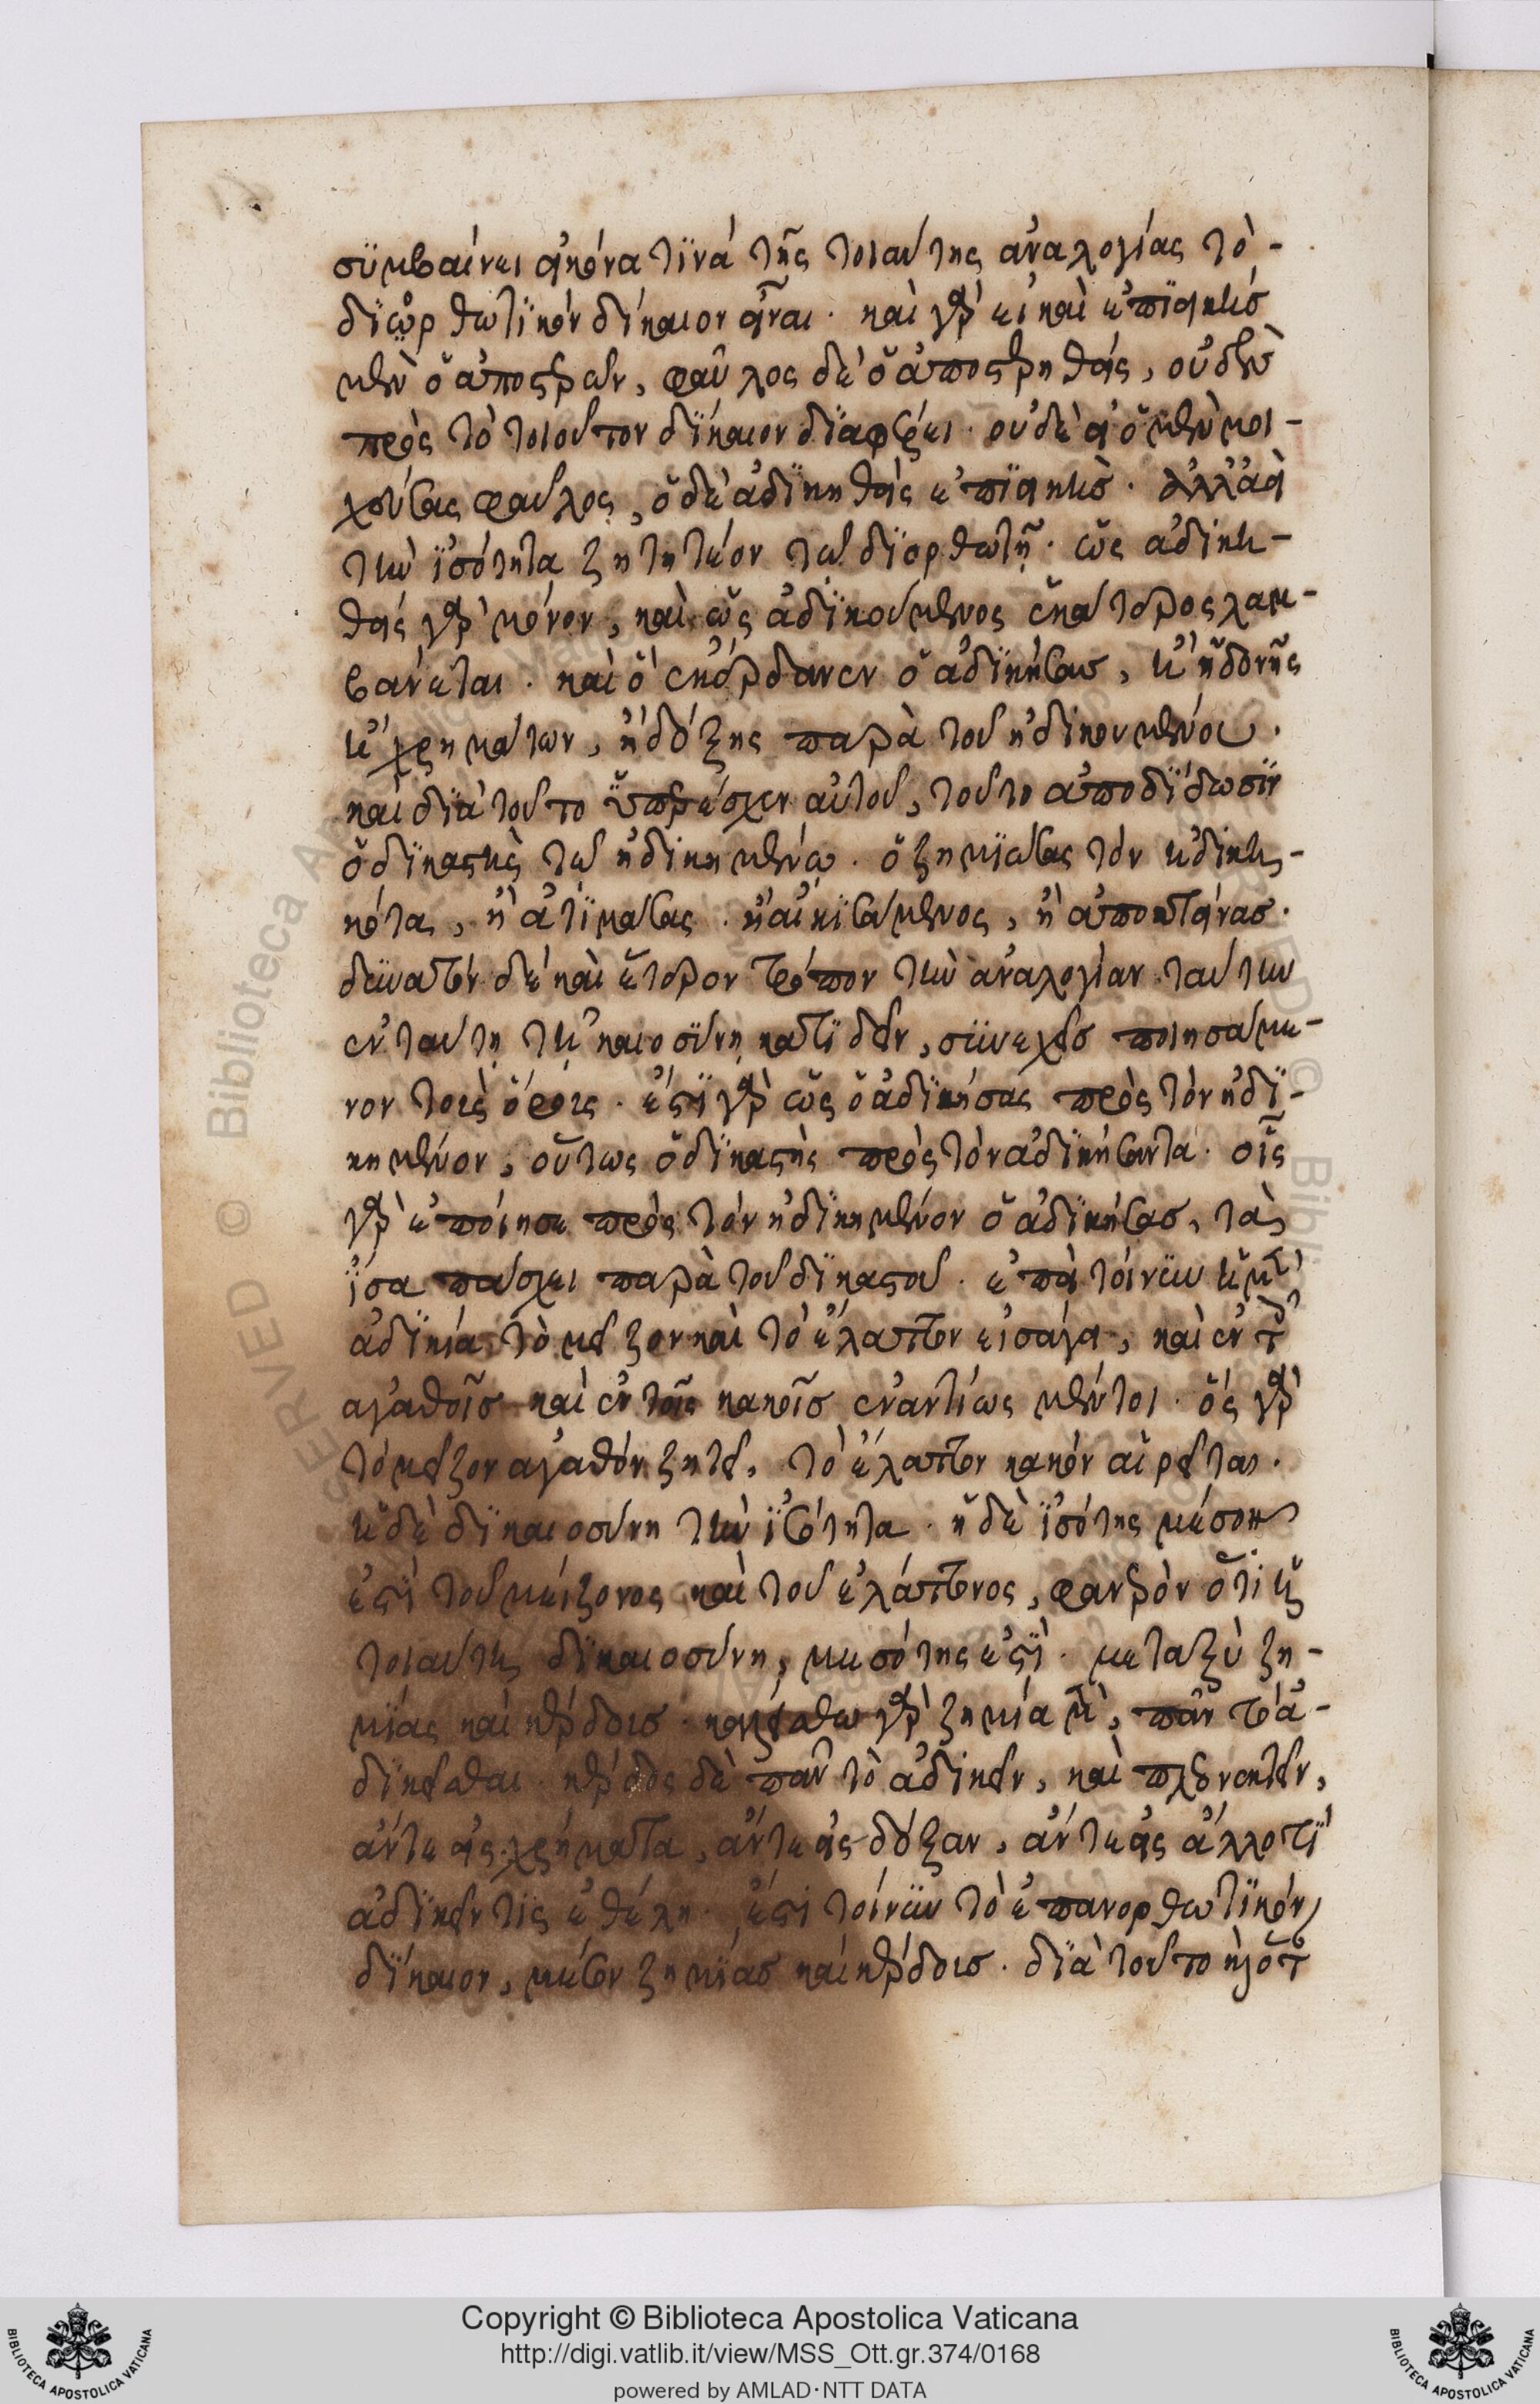 συμβαίνει εἰκόνα τινὰ τῆς τοιαύτης ἀναλογίας τὸ-
διορθωτικὸν δίκαιον εἶναι. καὶ γὰρ εἰ καὶ ἐπιεικὴς
μὲν ὁ ἀποστερῶν, φαῦλος δὲ ὁ ἀποστερηθείς, οὐδὲν
πρὸς τὸ τοιοῦτον δίκαιον διαφέρει. οὐδὲ εἰ ὁ μὲν μοι-
χεύσας φαῦλος, ὁ δὲ ἀδικηθεὶς ἐπιεικὴς. ἀλλὰ
τὴν ἰσότητα ζητητέον τῷ διορθωτῇ. ὡς ἀδικη-
θεὶς γὰρ μόνον, καὶ ὡς ἀδικούμενος ἑκάτερος λαμ-
βάνεται. καὶ ὃ ἐκέρδανεν ὁ ἀδικήσας, ἢ ἡδονῆς
ἢ χρημάτων, ἢ δόξης παρὰ τοῦ ἠδικουμένου.
καὶ διὰ τοῦτο ὑπερέσχεν αὐτοῦ, τοῦτο ἀποδίδωσιν
ὁ δικαστὴς τῷ ἠδικημένῳ. ὁ ζημιώσας τὸν ἠδικη-
κότα, ἢ ἀτιμάσας. ἢ αἰκισάμενος, ἢ ἀποκτείνας.
δυνατὸν δὲ καὶ ἕτερον τρόπον τὴν ἀναλογίαν ταύτην
ἐν ταύτῃ τῇ δικαιοσύνῃ κατιδεῖν, συνεχεῖς ποιησαμέ-
νον τοὺς ὅρους. ἔστι γὰρ ὡς ὁ ἀδικήσας πρὸς τὸν ἠδι-
κημένον, οὕτως ὁ δικαστὴς πρὸς τὸν ἀδικήσαντα. οἷς
γὰρ ἐποίησε πρὸς τὸν ἠδικημένον ὁ ἀδικήσας, τὰ
ἴσα πάσχει παρὰ τοῦ δικαστοῦ. ἐπεὶ τοίνυν ἡ μὲν
ἀδικία τὸ μεῖζον καὶ τὸ ἔλαττον εἰσάγει, καὶ ἐν τοῖς
ἀγαθοῖς καὶ ἐν τοῖς κακοῖς ἐναντίως μέντοι. ὃς γὰρ
τὸ μεῖζον ἀγαθὸν ζητεῖ, τὸ ἔλαττον κακὸν αἱρεῖται.
ἡ δὲ δικαιοσύνη τὴν ἰσότητα. ἡ δὲ ἰσότης μέσον
ἐστὶ τοῦ μείζονος καὶ τοῦ ἐλάττονος, φανερὸν ὅτι ἡ
τοιαύτη δικαιοσύνη, μεσότης ἐστὶ. μεταξὺ ζη-
μίας καὶ κέρδους. καλείσθω γὰρ ζημία μὲν, πᾶν τὸ ἀ-
δικεῖσθαι. κέρδος δὲ πᾶν τὸ ἀδικεῖν, καὶ πλεονεκτεῖν,
ἄν τε εἰς χρήματα, ἄν τε εἰς δόξαν, ἄν τε εἰς ἄλλο τι
ἀδικεῖν τις ἐθέλῃ. ἔστι τοίνυν τὸ ἐπανορθωτικὸν
δίκαιον, μέσον ζημίας καὶ κέρδους. διὰ τοῦτο καὶ ὅταν
Copyright © Biblioteca Apostolica Vaticana
http://digi.vatlib.it/view/MSS_Ott.gr.374/0168
powered by AMLAD·NTT DATA